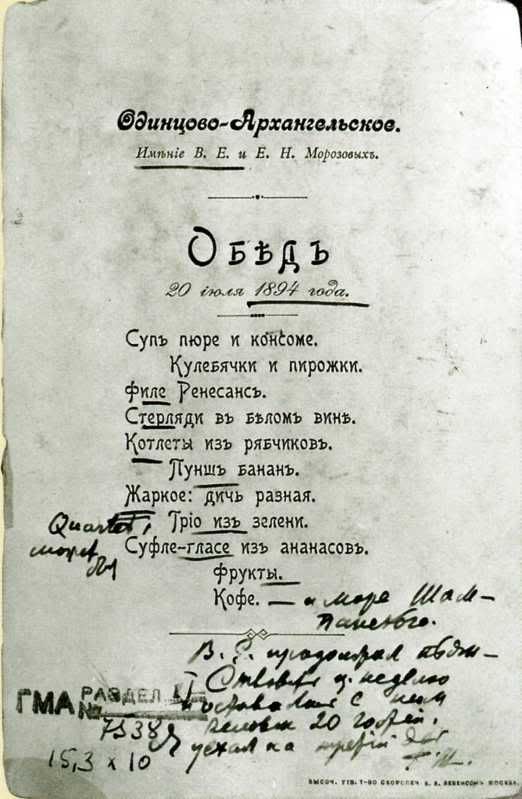 Одинцово-Архангельское.
Имѣніе В. Е. и Е. Н. Морозовыхъ.
Обѣдъ
20 іюля 1894 года.
Супъ пюре и консоме.
Кулебячки и пирожки.
Филе Ренесансъ.
Стерляди въ бѣломъ винѣ.
Котлеты изъ рябчиковъ.
Пуншъ бананъ.
Жаркое: дичь разная.
Quartet, Тріо изъ зелени.
Суфле-гласе изъ ананасовъ.
Фрукты.
Кофе. — и море Шам-
панского.
В. Е.
неделю
с ним
человек 20 гостей,
уехал на третий
ГМА РАЗДЕЛ II
№ 7538
15,3 х 10
ВЫСОЧ. УТВ. Т-ВО СКОРОПЕЧ. А. А. ЛЕВЕНСОНЪ МОСКВА.